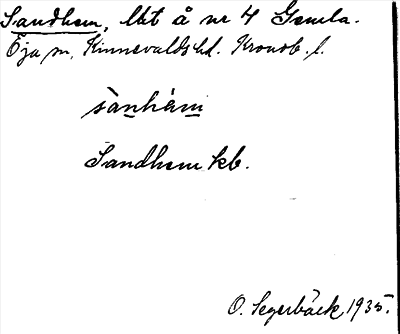 Sandhem, lht å nr 4 Gemla.
Öja sn, Kinnevalds hd. Kronob. l.
sànhèm
Sandhem kb.
O. Segerbäck 1935.